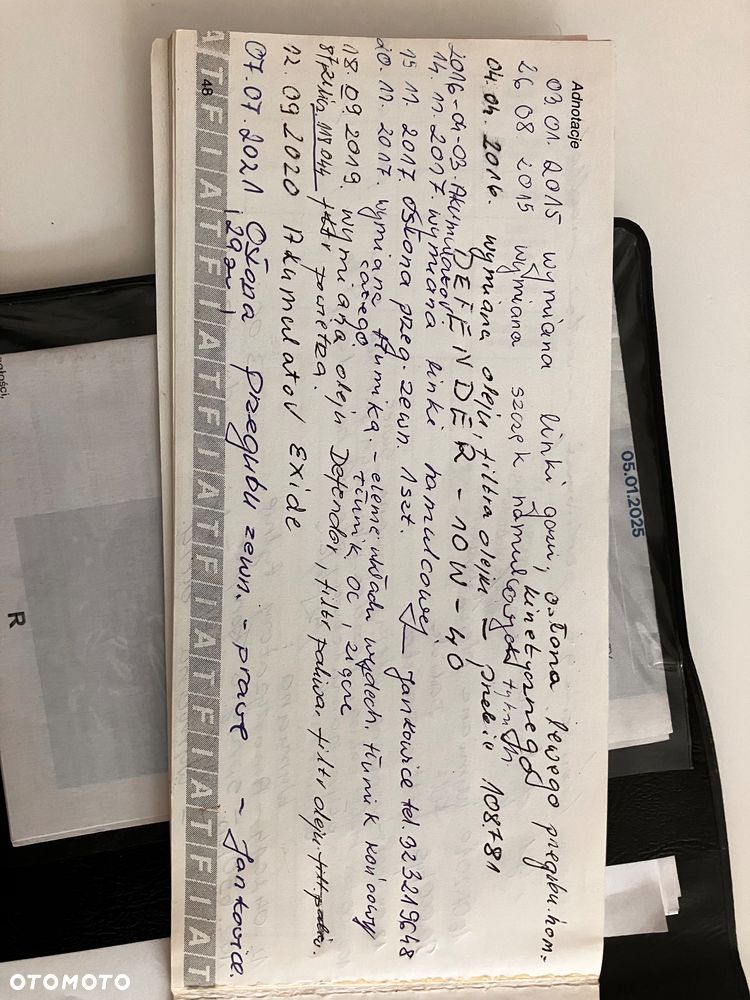 Adnotacje
09.01.2015 wymiana linki gazu, osłona lewego przegubu hom=
kinetycznego
26 08 2015 wymiana szczęk hamulcowych tylnych
04.04.2016. wymiana oleju, filtra oleju – przebieg 108781
DEFENDER - 10W-40
2016-04-03. Akumulator
14.11.2017. wymiana linki hamulcowej – Jankowice tel. 323219648
15 11. 2017. osłona przeg. zewn. 1 szt.
20.11.2017. wymiana tłumika. – elem. układu wydech. tłumik końcowy
tłumik
18.09.2019. wymiana oleju Defender, filtr paliwa, filtr oleju
118044 filtr powietrza.
12.09.2020 Akumulator Exide
07.07.2021 Osłona przegubu zewn. – prawe – Jankowice.
48
FIATFIATFIATFIATFIATFIATFIATFIAT
05.01.2025
R
OTOMOTO